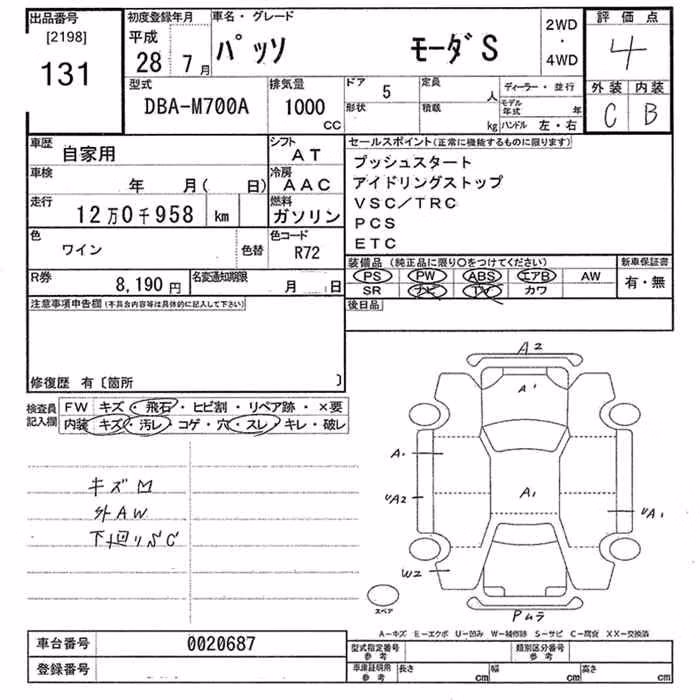 出品番号 初度登録年月 車名・グレード 評価点
[2198] 平成 パッソ モーダS 2WD ・ 4WD
131 28年 7月 4
型式 排気量 ドア 定員 ディーラー・並行 外装 内装
DBA-M700A 1000 cc 5 人 モデル年式 年 C B
形状 積載 kg ハンドル 左・右
車歴 自家用 シフト AT セールスポイント(正常に機能するものに限ります)
車検 年 月( 日) 冷房 AAC プッシュスタート
走行 12万0千958 km 燃料 ガソリン アイドリングストップ
VSC/TRC
色 ワイン 色替 色コード R72 PCS
ETC
R券 8,190円 名変通知期限 月 日 装備品 (純正品に限り○をつけてください) 新車保証書
PS PW ABS エアB AW 有・無
SR ナビ TV カワ
注意事項申告欄(不具合内容等は具体的に記入して下さい) 後日品
修復歴 有〔箇所 〕
検査員記入欄 FW キズ・飛石・ヒビ割・リペア跡・×要
内装 キズ・汚レ・コゲ・穴・スレ・キレ・破レ
キズ凹
外AW
下回りSC
A2
A1
A1
UA2
A1
UA1
W2
スペア
Pムラ
A-キズ E-エクボ U-凹み W-補修跡 S-サビ C-腐食 XX-交換済
車台番号 0020687 型式指定番号 参考 類別区分番号 参考
登録番号 車庫証明用 参考 長さ cm 幅 cm 高さ cm